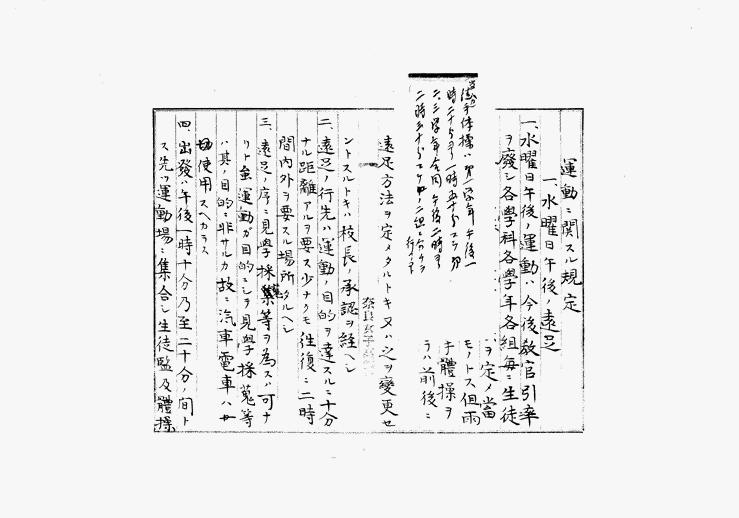 運動ニ関スル規定
一、水曜日午後ノ遠足
一、水曜日午後ノ運動ハ今後教官引率
ヲ廃シ各學科各學年各組毎ニ生徒
ヲ定メ當
モノトス但雨
チ體操ヲ
ラハ前後ニ
時二十分ヨリ一時五十分マデ
二、三學年合同午後二時ヨリ
遠足方法ヲ定メタルトキ又ハ之ヲ變更セ
ントスルトキハ校長ノ承認ヲ経ヘシ
奈良女子
二、遠足ノ行先ハ運動ノ目的ヲ達スルニ十分
ナル距離アルヲ要ス少ナクモ往復ニ二時
間内外ヲ要スル場所タルヘシ
三、遠足ノ序ニ見學採集等ヲ為スハ可ナ
リト雖運動ガ目的ニシテ見學採蒐等
ハ其ノ目的ニ非サルカ故ニ汽車電車ハ
使用スヘカラス
四、出發ハ午後一時十分乃至二十分ノ間ト
ス先ツ運動場ニ集合シ生徒監及體操